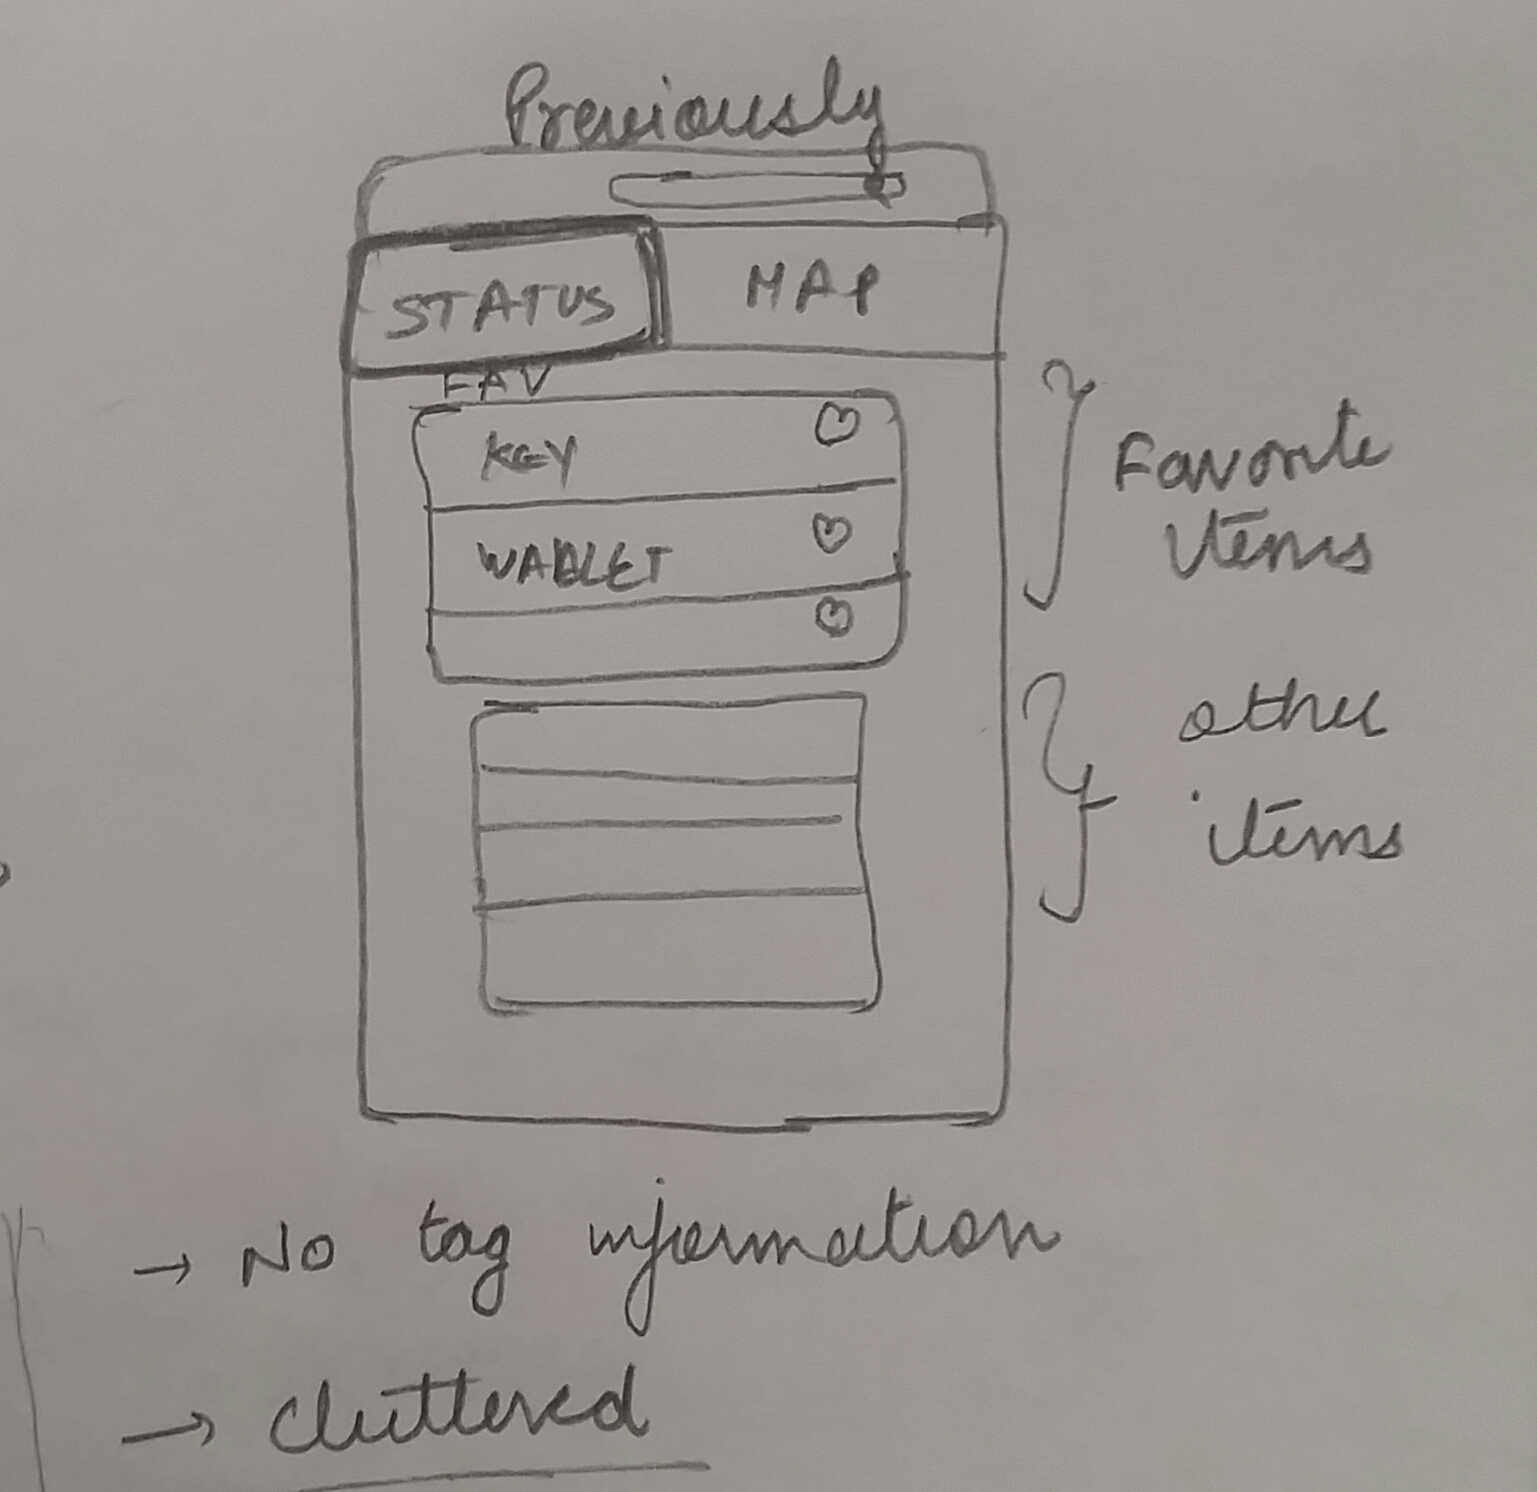 Previously
STATUS MAP
FAV
KEY
WALLET
Favorite
items
other
items
→ No tag information
→ cluttered